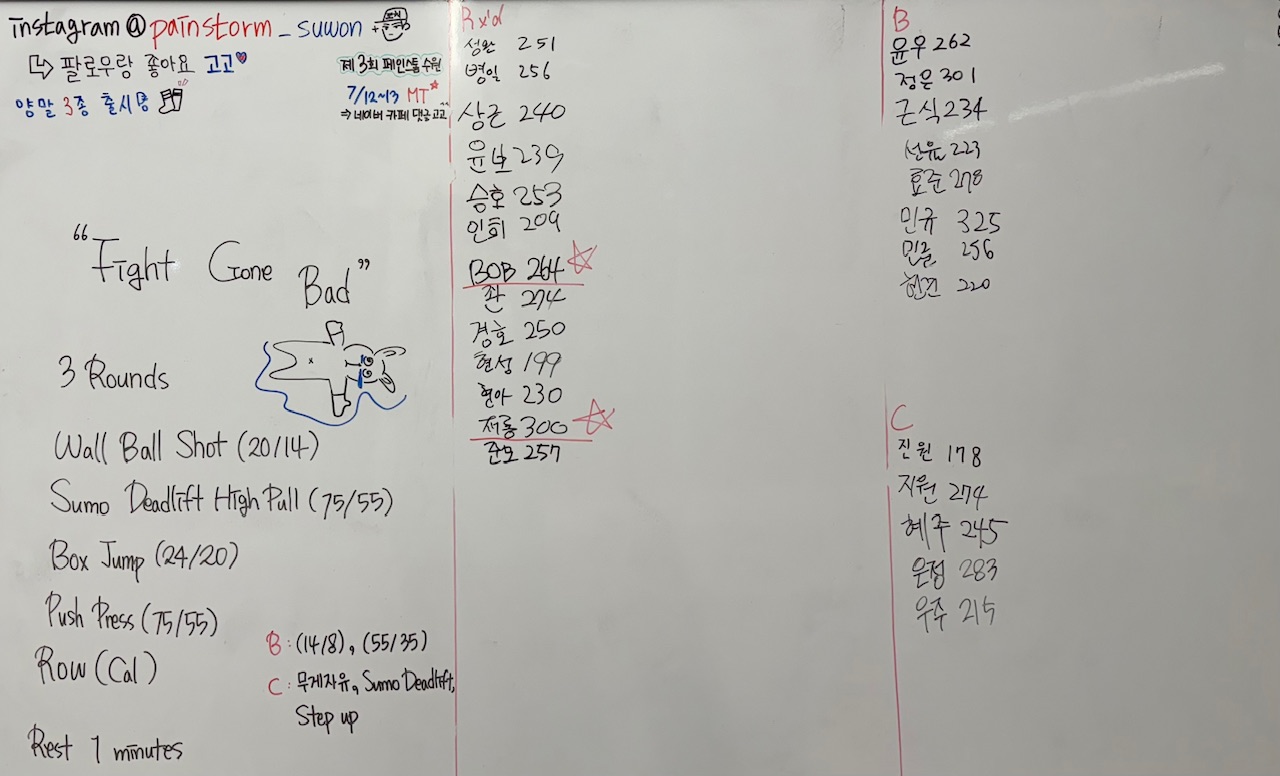 instagram @ painstorm _ suwon
↳ 팔로우랑 좋아요 고고♥
양말 3종 출시중
제 3회 페인스톰 수원
7/12~13 MT☆
⇒ 네이버 카페 댓글 고고
"Fight Gone Bad"
3 Rounds
Wall Ball Shot (20/14)
Sumo Deadlift High Pull (75/55)
Box Jump (24/20)
Push Press (75/55)
Row (Cal)
Rest 1 minutes
B : (14/8), (55/35)
C : 무게자유, Sumo Deadlift,
Step up
Rx'd
성완 251
병일 256
상근 240
윤보 239
승호 253
인희 209
BOB 264 ☆
관 274
경호 250
현성 199
현아 230
재룡 300 ☆
준모 257
B
윤우 262
정은 301
근식 234
선유 223
효준 278
민규 325
256
220
C
진원 178
지원 274
혜주 245
은정 283
우주 215